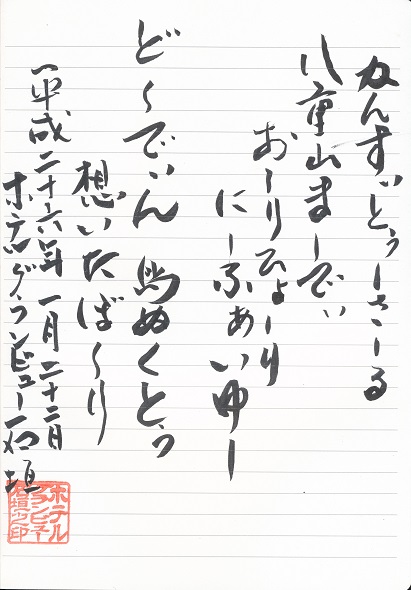 かんすいとぅーさーる
八重山まーでぃ
おーりひょーり
にーふぁいゆー
どーでぃん 島ぬくとぅ
想いたばーり
平成二十六年 一月二十二日
ホテルグランビュー石垣
ホテル
グランビュー
石垣之印